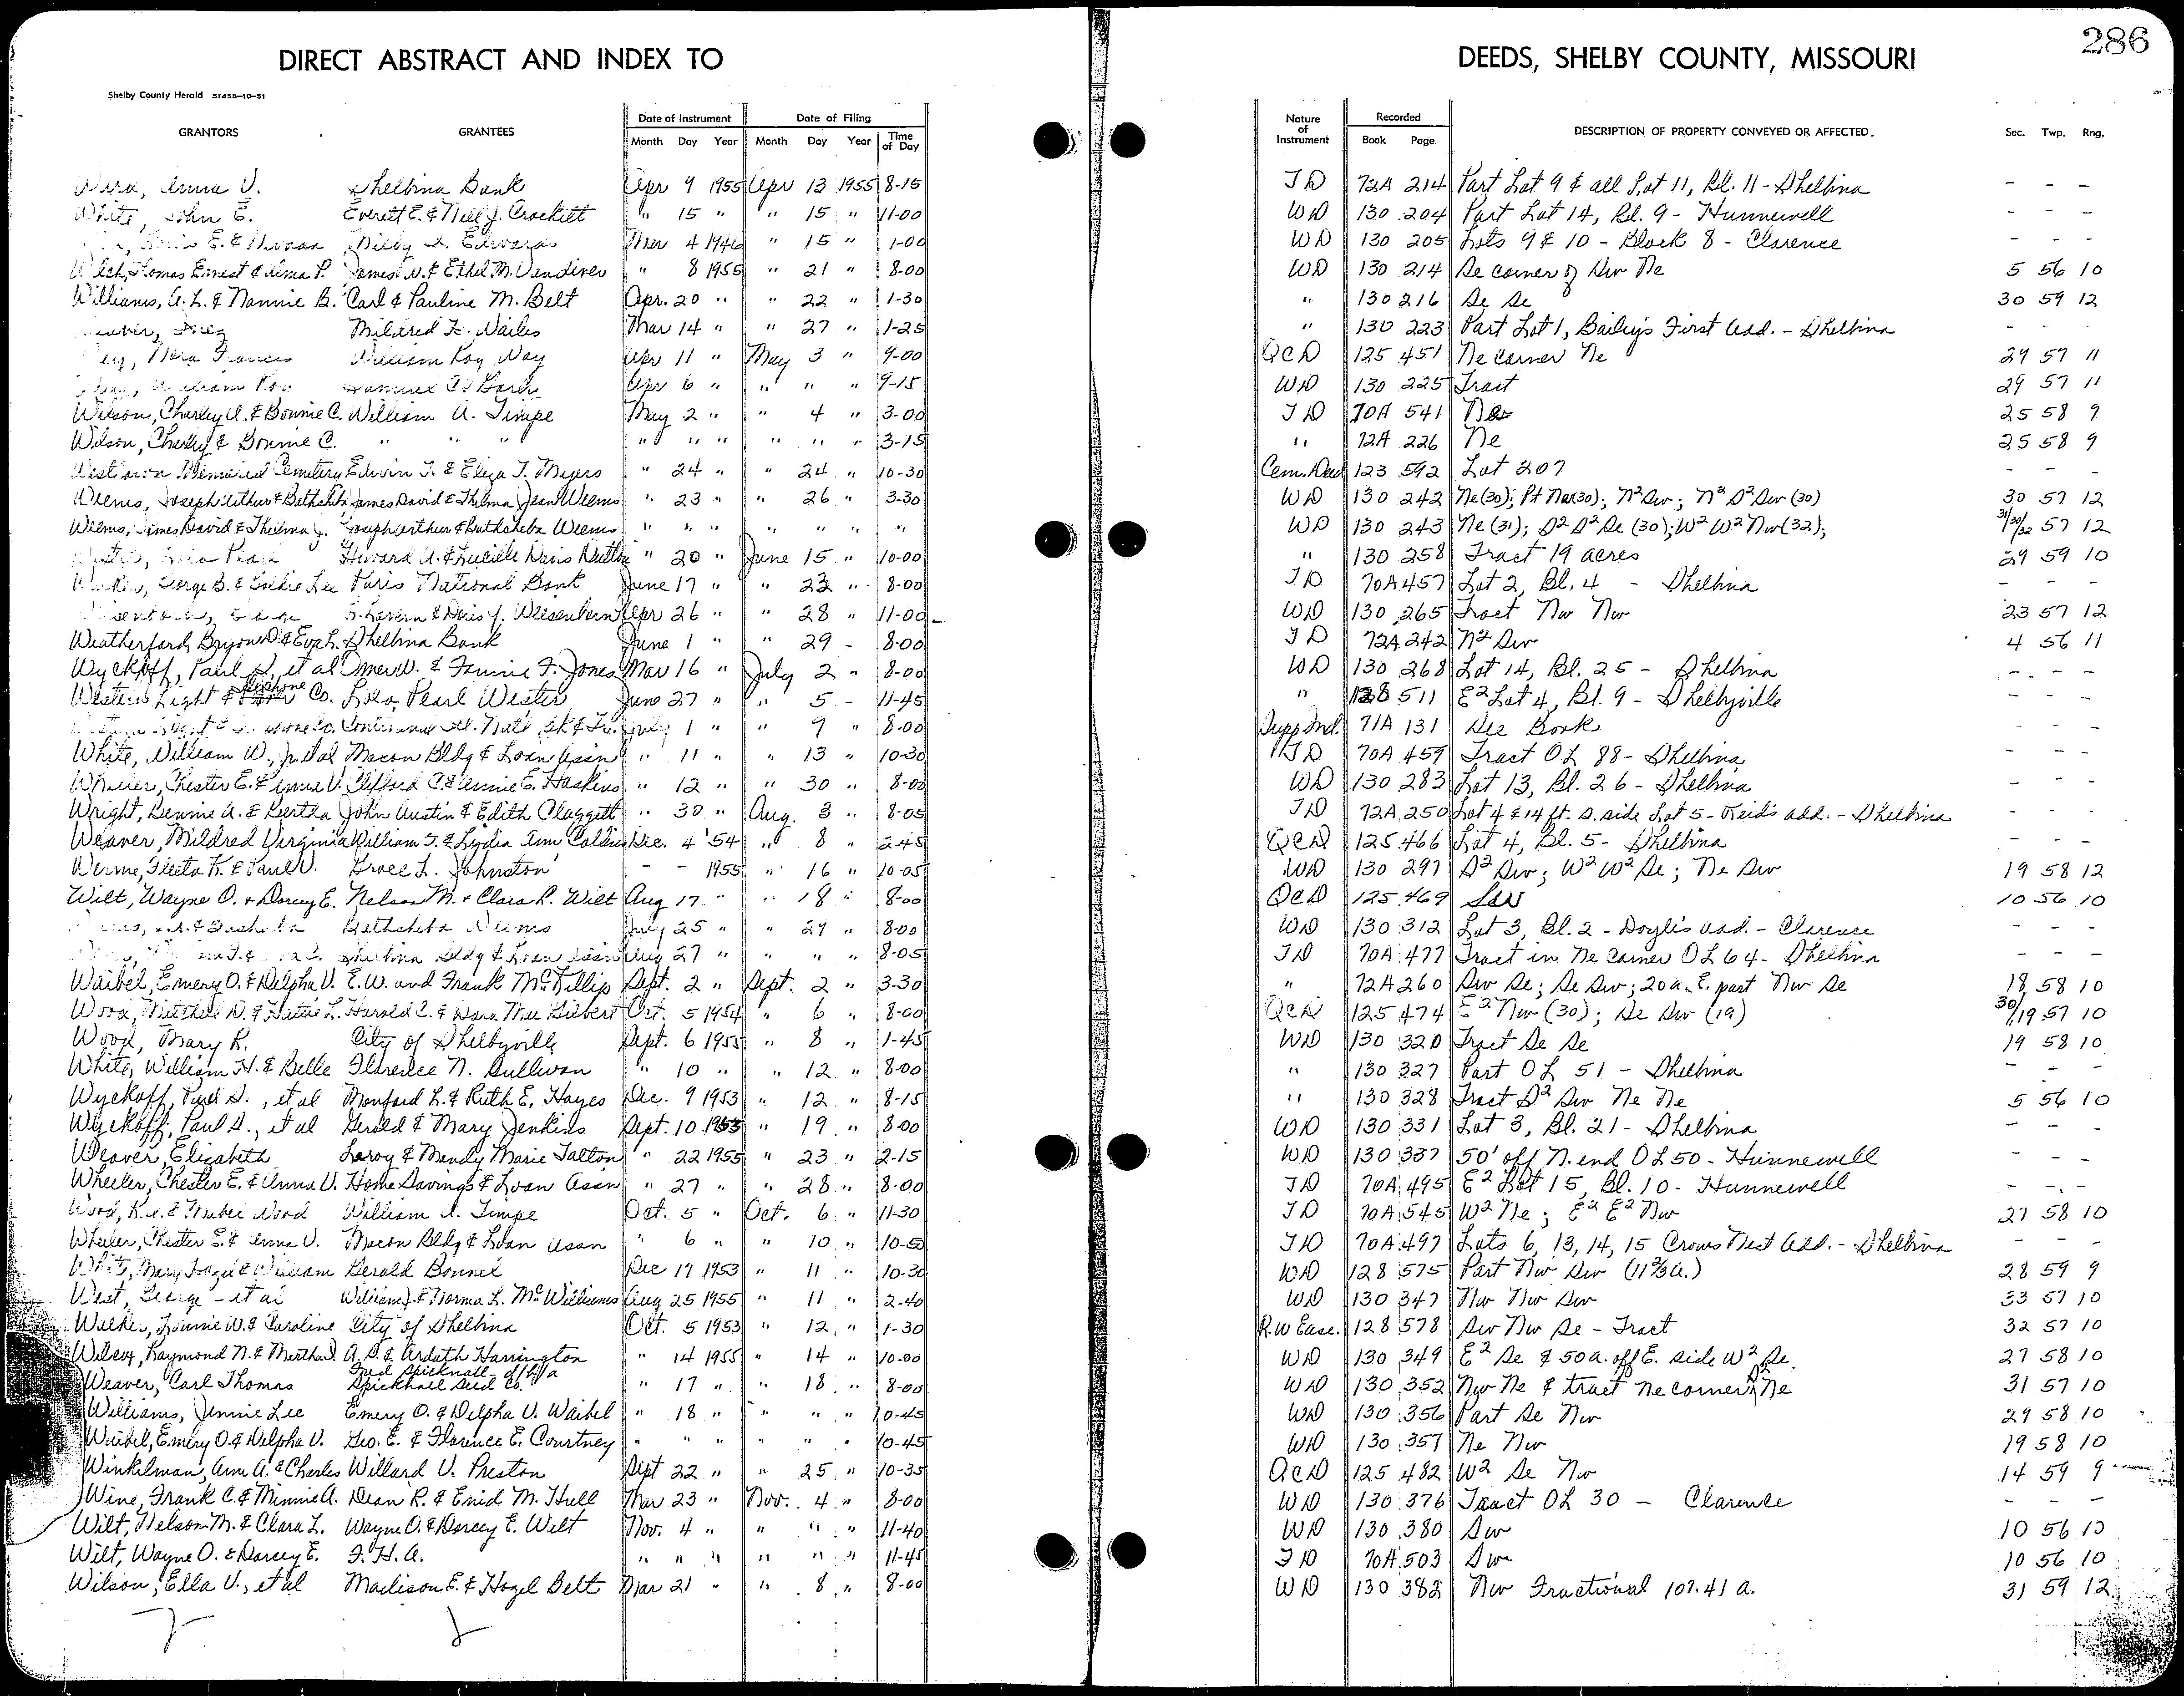 286
DIRECT ABSTRACT AND INDEX TO DEEDS, SHELBY COUNTY, MISSOURI
Shelby County Herald 51458-10-51
GRANTORS GRANTEES Date of Instrument Date of Filing Nature of Instrument Recorded DESCRIPTION OF PROPERTY CONVEYED OR AFFECTED. Sec. Twp. Rng.
Month Day Year Month Day Year Time of Day Book Page
Anna V. Shelbina Bank Apr 9 1955 Apr 13 1955 8-15 TD 72A 214 Part Lot 9 & all Lot 11, Bl. 11 - Shelbina - - -
White, John E. Everett E. & Nell J. Crockett " 15 " " 15 " 11-00 WD 130 204 Part Lot 14, Bl. 9 - Hunnewell - - -
Edwards Mar 4 1946 " 15 " 1-00 WD 130 205 Lots 9 & 10 - Block 8 - Clarence - - -
Welch, Thomas Ernest & Alma P. James W. & Ethel M. Vandiver " 8 1955 " 21 " 8-00 WD 130 214 Se corner of Sw Ne 5 56 10
Williams, A. L. & Nannie B. Carl & Pauline M. Belt Apr. 20 " " 22 " 1-30 " 130 216 Se Se 30 59 12
Weaver, Inez Mildred F. Wailes Mar 14 " " 27 " 1-25 " 130 223 Part Lot 1, Bailey's First Add. - Shelbina - - -
Frances William Roy Way Apr 11 " May 3 " 9-00 QCD 125 451 Ne corner Ne 29 57 11
William Roy Apr 6 " " " " 9-15 WD 130 225 Tract 29 57 11
Wilson, Charley A. & Bonnie C. William A. Timpe May 2 " " 4 " 3-00 TD 70A 541 Ne 25 58 9
Wilson, Charley & Bonnie C. " " " " " " " " " 3-15 " 72A 226 Ne 25 58 9
Memorial Cemetery Edwin T. & Eliza T. Myers " 24 " " 24 " 10-30 Cem. Deed 123 592 Lot 207 - - -
Weems, Joseph Arthur & Bathsheba James David & Thelma Jean Weems " 23 " " 26 " 3-30 WD 130 242 Ne (30); Pt Nw (30); N² Sw; N² S² Sw (30) 30 57 12
Weems, James David & Thelma J. Joseph Arthur & Bathsheba Weems " " " " " " " WD 130 243 Ne (31); S² S² Se (30); W² W² Nw (32); 31/30/32 57 12
Wester, Lola Pearl Howard A. & Lucille Davis " 20 " June 15 " 10-00 " 130 258 Tract 19 acres 29 59 10
George B. & Lee Paris National Bank June 17 " " 23 " 8-00 TD 70A 457 Lot 2, Bl. 4 - Shelbina - - -
Lavern & Doris J. Weisenborn Apr 26 " " 28 " 11-00 WD 130 265 Tract Nw Nw 23 57 12
Weatherford, Bryon D. & Eva L. Shelbina Bank June 1 " " 29 - 8-00 TD 72A 242 N² Sw 4 56 11
Wyckoff, Paul S., et al Omer W. & Fannie F. Jones Mar 16 " July 2 " 8-00 WD 130 268 Lot 14, Bl. 25 - Shelbina - - -
Western Light & Telephone Co. Lola Pearl Wester June 27 " " 5 - 11-45 " 128 511 E² Lot 4, Bl. 9 - Shelbyville - - -
Continental Ill. Nat'l Bk & Tr. July 1 " " 9 " 8-00 Supp Ind. 71A 131 See Book - - -
White, William W., Jr. et al Macon Bldg & Loan Assn " 11 " " 13 " 10-30 TD 70A 459 Tract OL 88 - Shelbina - - -
Wheeler, Chester E. & Anna V. Clifford C. & Annie E. Haskins " 12 " " 30 " 8-00 WD 130 283 Lot 13, Bl. 26 - Shelbina - - -
Wright, Bennie A. & Bertha John Austin & Edith Claggett " 30 " Aug. 3 " 8-05 TD 72A 250 Lot 4 & 14 ft. S. side Lot 5 - Reid's add. - Shelbina - - -
Weaver, Mildred Virginia William T. & Lydia Ann Dec. 4 '54 " 8 " 2-45 QCD 125 466 Lot 4, Bl. 5 - Shelbina - - -
Fleeta K. & Paul V. Grace L. Johnston - - 1955 " 16 " 10-05 WD 130 297 S² Sw; W² W² Se; Ne Sw 19 58 12
Wilt, Wayne O. & Dorcey E. Nelson M. & Clara L. Wilt Aug 17 " " 18 " 8-00 QCD 125 469 SW 10 56 10
Bathsheba Weems July 25 " " 29 " 8-00 WD 130 312 Lot 3, Bl. 2 - Doyle's add. - Clarence - - -
Shelbina Bldg & Loan Assn Aug 27 " " " " 8-05 TD 70A 477 Tract in Ne corner OL 64 - Shelbina - - -
Waibel, Emery O. & Delpha V. E. W. and Frank McFillip Sept. 2 " Sept. 2 " 3-30 " 72A 260 Sw Se; Se Sw; 20 a. E. part Nw Se 18 58 10
Wood, Mitchell D. & Hattie L. Harold C. & Dora Mae Gilbert Oct. 5 1954 " 6 " 8-00 QCD 125 474 E² Nw (30); Se Sw (19) 30/19 57 10
Wood, Mary R. City of Shelbyville Sept. 6 1955 " 8 " 1-45 WD 130 320 Tract Se Se 19 58 10
White, William H. & Belle Florence N. Sullivan " 10 " " 12 " 8-00 " 130 327 Part OL 51 - Shelbina - - -
Wyckoff, Paul S., et al Monford L. & Ruth E. Hayes Dec. 9 1953 " 12 " 8-15 " 130 328 Tract S² Sw Ne Ne 5 56 10
Wyckoff, Paul S., et al Gerald & Mary Jenkins Sept. 10 1955 " 19 " 8-00 WD 130 331 Lot 3, Bl. 21 - Shelbina - - -
Weaver, Elizabeth Leroy & Mendy Marie Tatton " 22 1955 " 23 " 2-15 WD 130 337 50' off N. end OL 50 - Hunnewell - - -
Wheeler, Chester E. & Anna V. Home Savings & Loan Assn " 27 " " 28 " 8-00 TD 70A 495 E² Lot 15, Bl. 10 - Hunnewell - - -
Wood, R. A. & Wood William A. Timpe Oct. 5 " Oct. 6 " 11-30 TD 70A 545 W² Ne; E² E² Nw 27 58 10
Wheeler, Chester E. & Anna V. Macon Bldg & Loan Assn " 6 " " 10 " 10-50 TD 70A 497 Lots 6, 13, 14, 15 Crows Nest Add. - Shelbina - - -
White, Mary Hazel & William Gerald Bonnel Dec 17 1953 " 11 " 10-30 WD 128 575 Part Nw Sw (11 ⅔ a.) 28 59 9
West, George - et al William J. & Norma L. McWilliams Aug 25 1955 " 11 " 2-40 WD 130 347 Nw Nw Sw 33 57 10
Walker, Lonnie W. & Caroline City of Shelbina Oct. 5 1953 " 12 " 1-30 R.W Ease. 128 578 Sw Nw Se - Tract 32 57 10
Wilcox, Raymond N. & Martha J. A. S. & Ardath Harrington " 14 1955 " 14 " 10-00 WD 130 349 E² Se & 50 a. off E. side W² Se 27 58 10
Weaver, Carl Thomas Fred Spicknall d/b/a Spicknall Seed Co. " 17 " " 18 " 8-00 WD 130 352 Nw Ne & tract Ne corner of Ne 31 57 10
Williams, Jennie Lee Emery O. & Delpha V. Waibel " 18 " " " " 10-45 WD 130 356 Part Se Nw 29 58 10
Waibel, Emery O. & Delpha V. Geo. E. & Florence E. Courtney " " " " " " 10-45 WD 130 357 Ne Nw 19 58 10
Winkilman, Ann A. & Charles Willard V. Preston Sept 22 " " 25 " 10-35 QCD 125 482 W² Se Nw 14 59 9
Wine, Frank C. & Minnie A. Dean R. & Enid M. Hull Mar 23 " Nov. 4 " 8-00 WD 130 376 Tract OL 30 - Clarence - - -
Wilt, Nelson M. & Clara L. Wayne O. & Dorcey E. Wilt Nov. 4 " " " " 11-40 WD 130 380 Sw 10 56 10
Wilt, Wayne O. & Dorcey E. F. H. A. " " " " " " 11-45 TD 70A 503 Sw 10 56 10
Wilson, Ella V., et al Madison E. & Hazel Belt Mar 21 " " 8 " 8-00 WD 130 382 Nw Fractional 107.41 a. 31 59 12